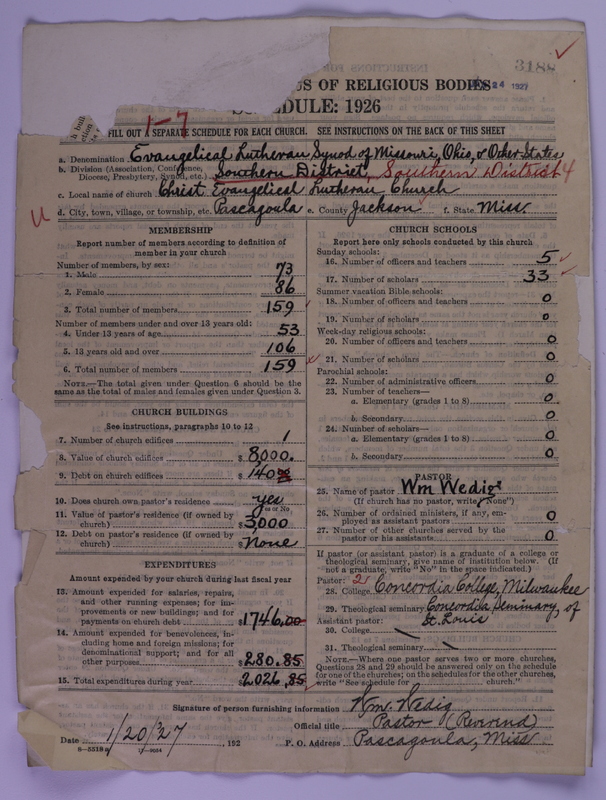 3188
US OF RELIGIOUS BODIES
24 1927
EDULE: 1926
1-7
FILL OUT SEPARATE SCHEDULE FOR EACH CHURCH. SEE INSTRUCTIONS ON THE BACK OF THIS SHEET
a. Denomination Evangelical Lutheran Synod of Missouri, Ohio, & Other States
b. Division (Association, Conference, Diocese, Presbytery, Synod, etc.) Southern District, Southern District 4
c. Local name of church Christ Evangelical Lutheran Church
d. City, town, village, or township, etc. Pascagoula e. County Jackson f. State Miss.
MEMBERSHIP
Report number of members according to definition of
member in your church
Number of members, by sex:
1. Male 73
2. Female 86
3. Total number of members 159
Number of members under and over 13 years old:
4. Under 13 years of age 53
5. 13 years old and over 106
6. Total number of members 159
NOTE.—The total given under Question 6 should be
same as the total of males and females given under Question 3.
CHURCH BUILDINGS
See instructions, paragraphs 10 to 12
7. Number of church edifices 1
8. Value of church edifices $ 8,000.
9. Debt on church edifices $ 140
10. Does church own pastor's residence yes
Yes or No
11. Value of pastor's residence (if owned by
church) $ 3,000
12. Debt on pastor's residence (if owned by
church) $ none
EXPENDITURES
Amount expended by your church during last fiscal year
13. Amount expended for salaries, repairs,
and other running expenses; for im-
provements or new buildings; and for
payments on church debt $ 1746.00
14. Amount expended for benevolences, in-
cluding home and foreign missions; for
denominational support; and for all
other purposes $ 280.85
15. Total expenditures during year $ 2026.85
CHURCH SCHOOLS
Report here only schools conducted by this church
Sunday schools:
16. Number of officers and teachers 5
17. Number of scholars 33
Summer vacation Bible schools:
18. Number of officers and teachers 0
19. Number of scholars 0
Week-day religious schools:
20. Number of officers and teachers 0
21. Number of scholars 0
Parochial schools:
22. Number of administrative officers 0
23. Number of teachers—
a. Elementary (grades 1 to 8) 0
b. Secondary 0
24. Number of scholars—
a. Elementary (grades 1 to 8) 0
b. Secondary 0
PASTOR
25. Name of pastor Wm Wedig
(If church has no pastor, write "None")
26. Number of ordained ministers, if any, em-
ployed as assistant pastors 0
27. Number of other churches served by the
pastor or his assistants 0
If pastor (or assistant pastor) is a graduate of a college or
theological seminary, give name of institution below. (If
not a graduate, write "No" in the space indicated.)
Pastor: 2
28. College Concordia College, Milwaukee
29. Theological seminary Concordia Seminary of
Assistant pastor: St. Louis
30. College
31. Theological seminary
NOTE.—Where one pastor serves two or more churches,
Questions 28 and 29 should be answered only on the schedule
for one of the churches; on the schedules for the other churches,
write "See schedule for church."
Signature of person furnishing information Wm. Wedig
Official title Pastor (Reverend)
Date 1/20/27, 192 P. O. Address Pascagoula, Miss.